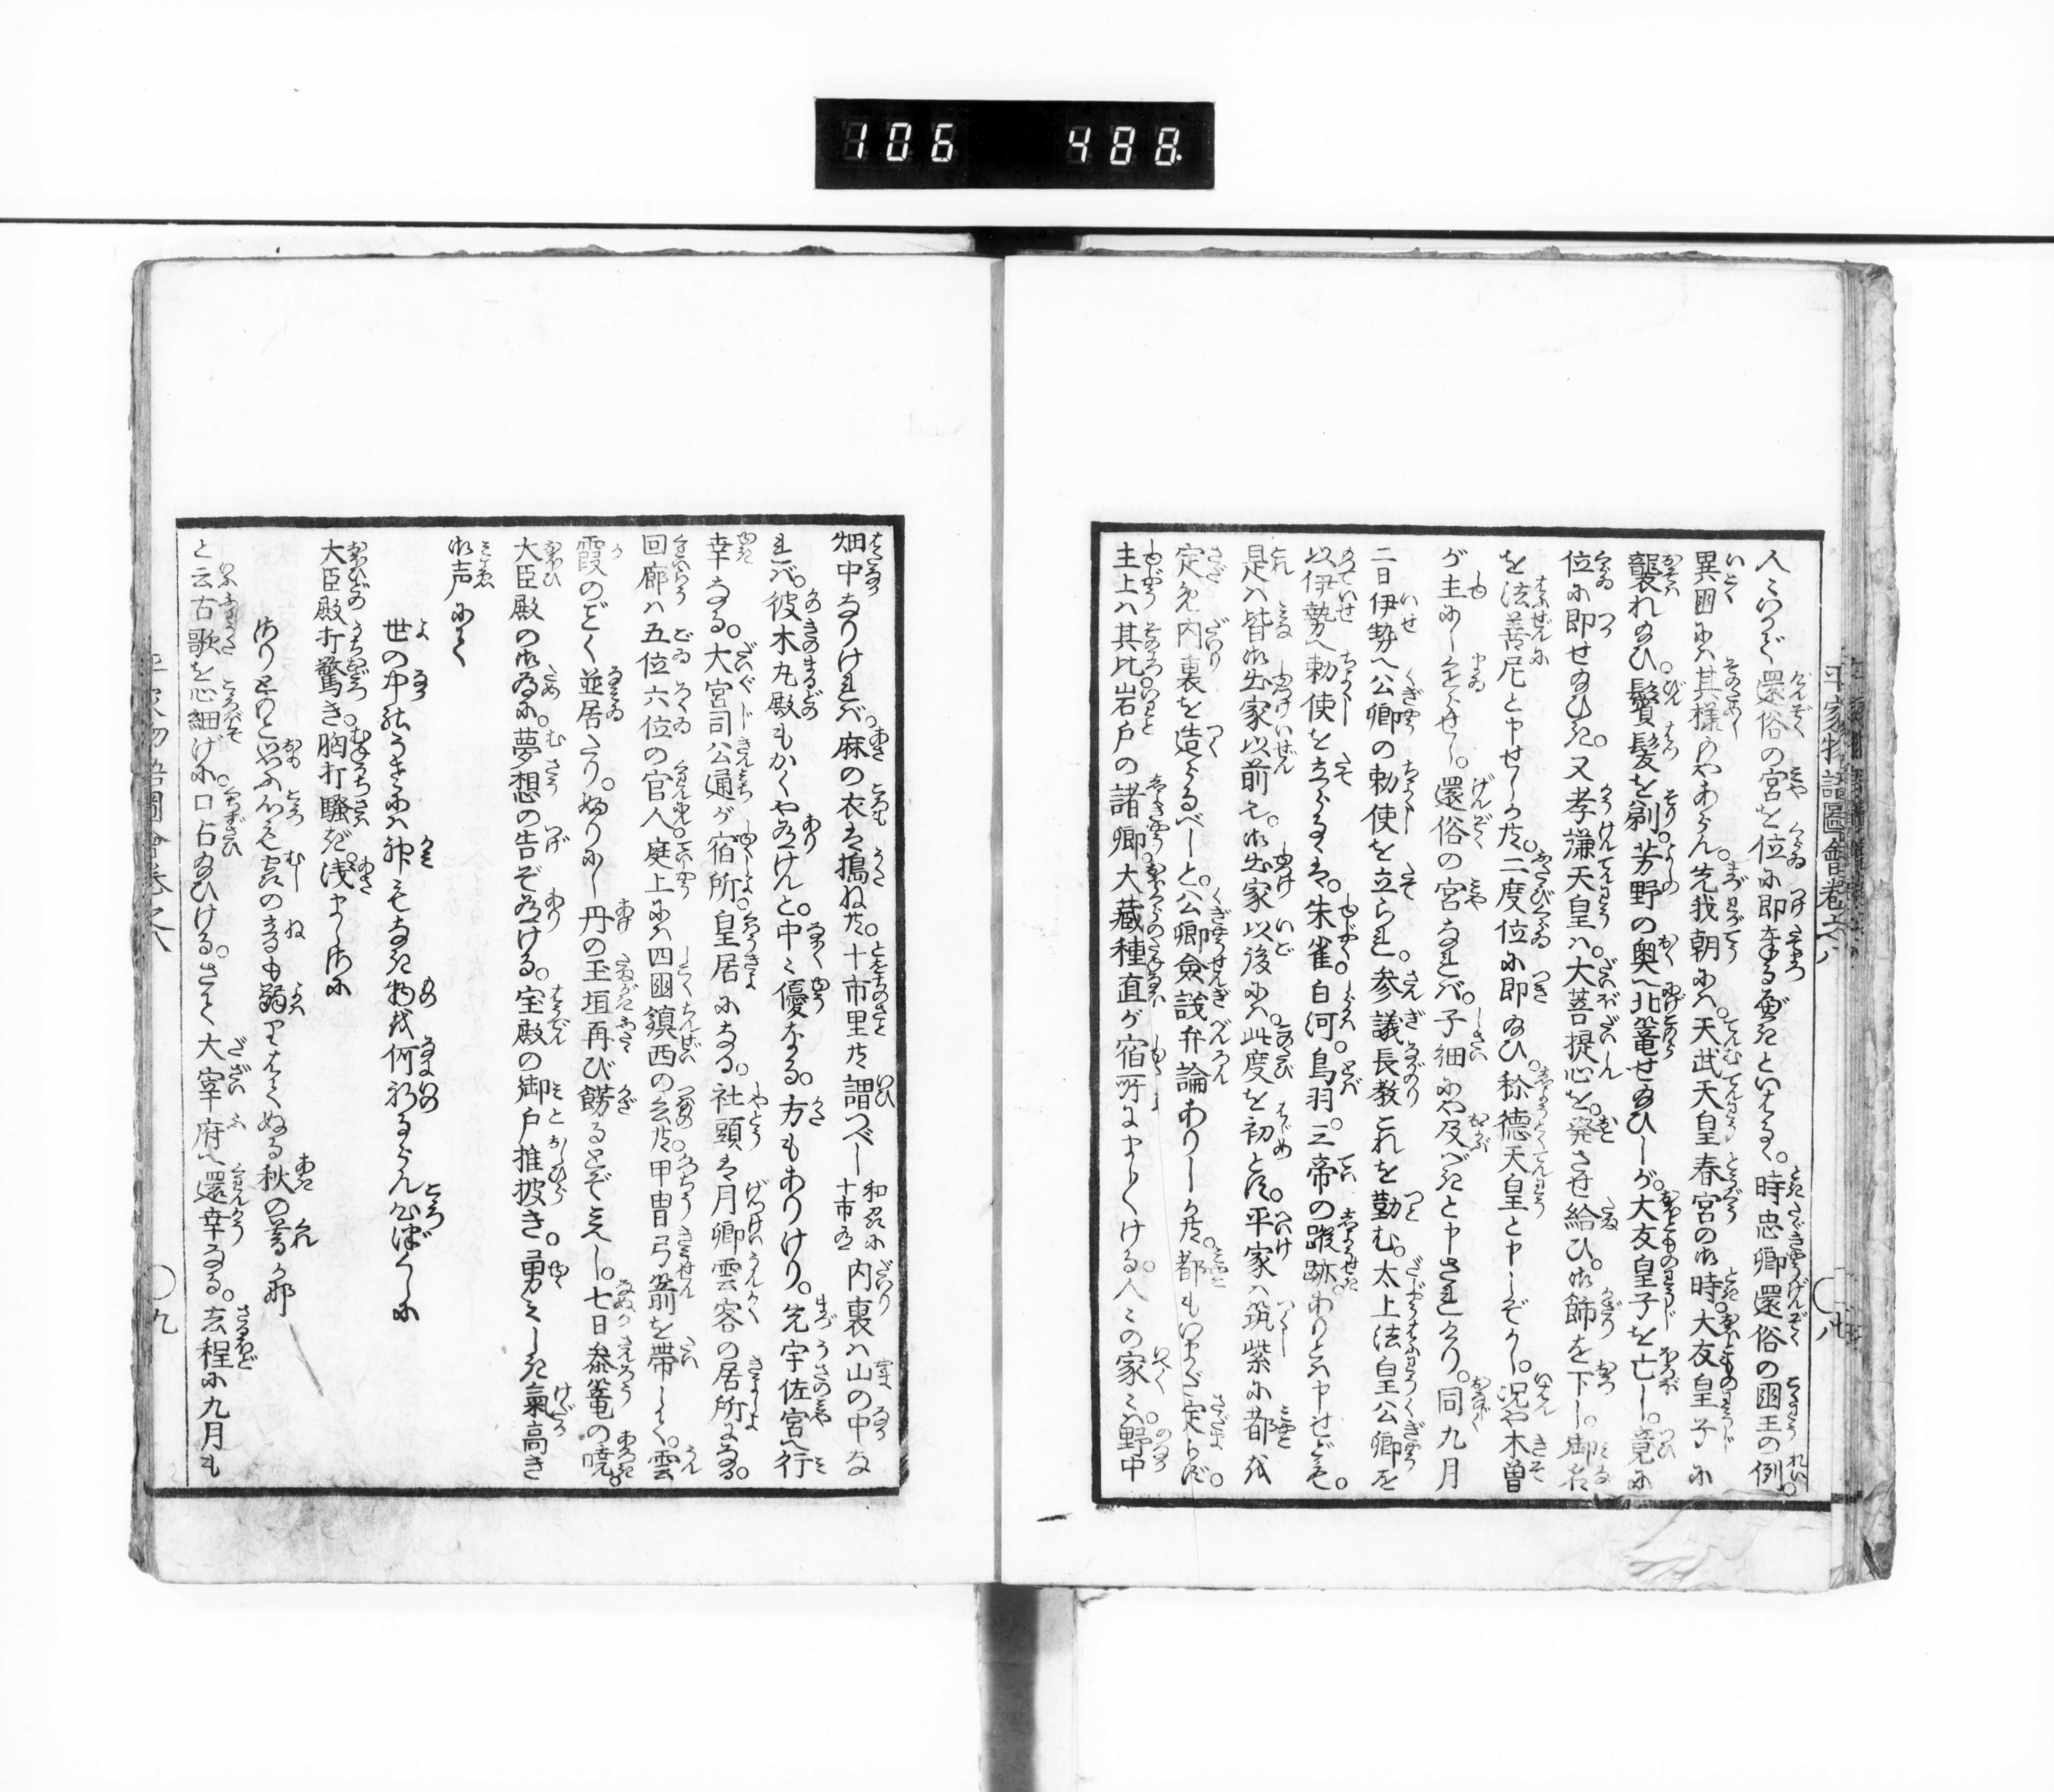 106 488
平家物語圖會卷之六 八
人こいかで還俗の宮を位に即奉るべきといはる。時忠卿還俗の國王の例。
異國には其様もやあらん。先我朝には。天武天皇春宮の御時。大友皇子に
襲れ給ひ。鬢髮を剃。芳野の奥へ北篭せ給ひしが。大友皇子を亡し。竟に
位に即せ給ひき。又孝謙天皇は。大菩提心を。発させ給ひ。御飾を下し。御名
を法善尼と申せしかど。二度位に即給ひ。称德天皇と申しぞかし。况や木曽
が主にしまゐらせし。還俗の宮なれば。子細にや及べきと申されけり。同九月
二日伊勢へ公卿の勅使を立らる。参議長教これを勤む。太上法皇公卿を
以伊勢へ勅使を立らるゝは。朱雀。白河。鳥羽。三帝の蹤跡ありとは申せども。
是は皆御出家以前也。御出家以後には。此度を初とす。平家は筑紫に都を
定め内裏を造らるべしと。公卿僉議弁論ありしかど。都もいまだ定らず。
主上は其比岩戸の諸卿。大藏種直が宿所にましましける。人々の家々は。野中
畑中なりければ。麻の衣は擣ねど。十市里共謂つべし 和州に十市あり 内裏は山の中な
れば。彼木丸殿もかくや有けんと。中々優なる。方もありけり。先宇佐宮へ行
幸なる。大宮司公通が宿所。皇居になる。社頭は月卿雲客の居所になる。
回廊は五位六位の官人。庭上には四國鎮西の兵共。甲冑弓箭を帯して。雲
霞のごとく並居たり。ふりにし丹の玉垣再び餝るとぞ見えし。七日参篭の暁。
大臣殿の御為に。夢想の告ぞ有ける。宝殿の御戸推披き。勇々しき氣高き
御声にて
世の中のうさには神もなき物を何祈るらん心づくしに
大臣殿打驚き。胸打騒ぎ。浅ましさに
さりともと思ふ心も虫の音も弱りはてぬる秋の暮かな
と云古歌を心細げに。口占給ひける。さて大宰府へ還幸なる。去程に九月も
平家物語圖會卷之六 九